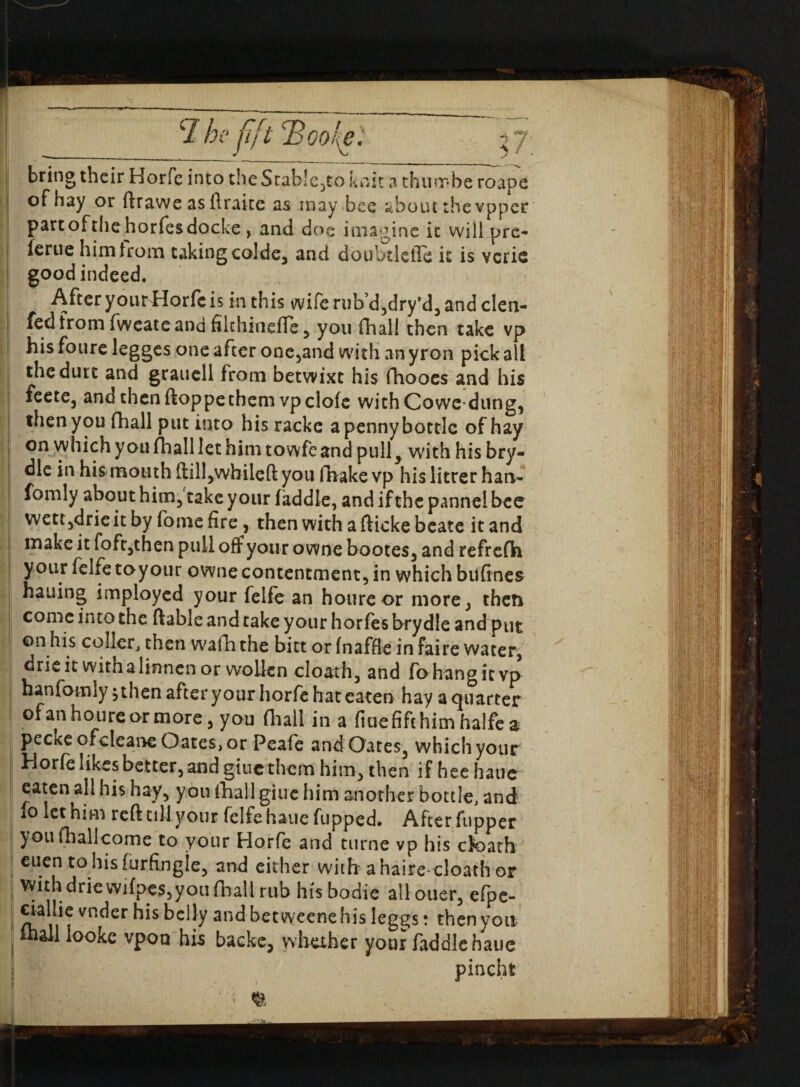 The fift Booke. 37
bring their Horſe into the Stable,to knit a thumbe roape
of hay or ſtrawe as ſtraite as may bee about the vpper
part of the horſes docke, and doe imagine it will pre-
ſerue him from taking colde, and doubtleſſe it is verie
good indeed.
After your Horſe is in this wiſe rub'd,dry'd, and clen-
ſed from ſweate and filthineſſe, you ſhall then take vp
his foure legges one after one,and with an yron pick all
the durt and grauell from betwixt his ſhooes and his
feete, and then ſtoppe them vp cloſe with Cowe-dung,
then you ſhall put into his racke a penny bottle of hay
on which you ſhall let him towſe and pull, with his bry-
dle in his mouth ſtill,whileſt you ſhake vp his litter han-
ſomly about him, take your ſaddle, and if the pannel bee
wett,drie it by ſome fire, then with a ſticke beate it and
make it ſoft,then pull off your owne bootes, and refreſh
your ſelfe to your owne contentment, in which buſines
hauing imployed your ſelfe an houre or more, then
come into the ſtable and take your horſes brydle and put
on his coller, then waſh the bitt or ſnaffle in faire water,
drie it with a linnen or wollen cloath, and ſo hang it vp
hanſomly; then after your horſe hat eaten hay a quarter
of an houre or more, you ſhall in a ſiue ſift him halfe a
pecke of cleane Oates, or Peaſe and Oates, which your
Horſe likes better, and giue them him, then if hee haue
eaten all his hay, you ſhall giue him another bottle, and
ſo let him reſt till your ſelfe haue ſupped. After ſupper
you ſhall come to your Horſe and turne vp his cloath
euen to his ſurſingle, and either with a haire-cloath or
with drie wiſpes,you ſhall rub his bodie all ouer, eſpe-
ciallie vnder his belly and betweene his leggs: then you
ſhall looke vpon his backe, whether your ſaddle haue
pincht